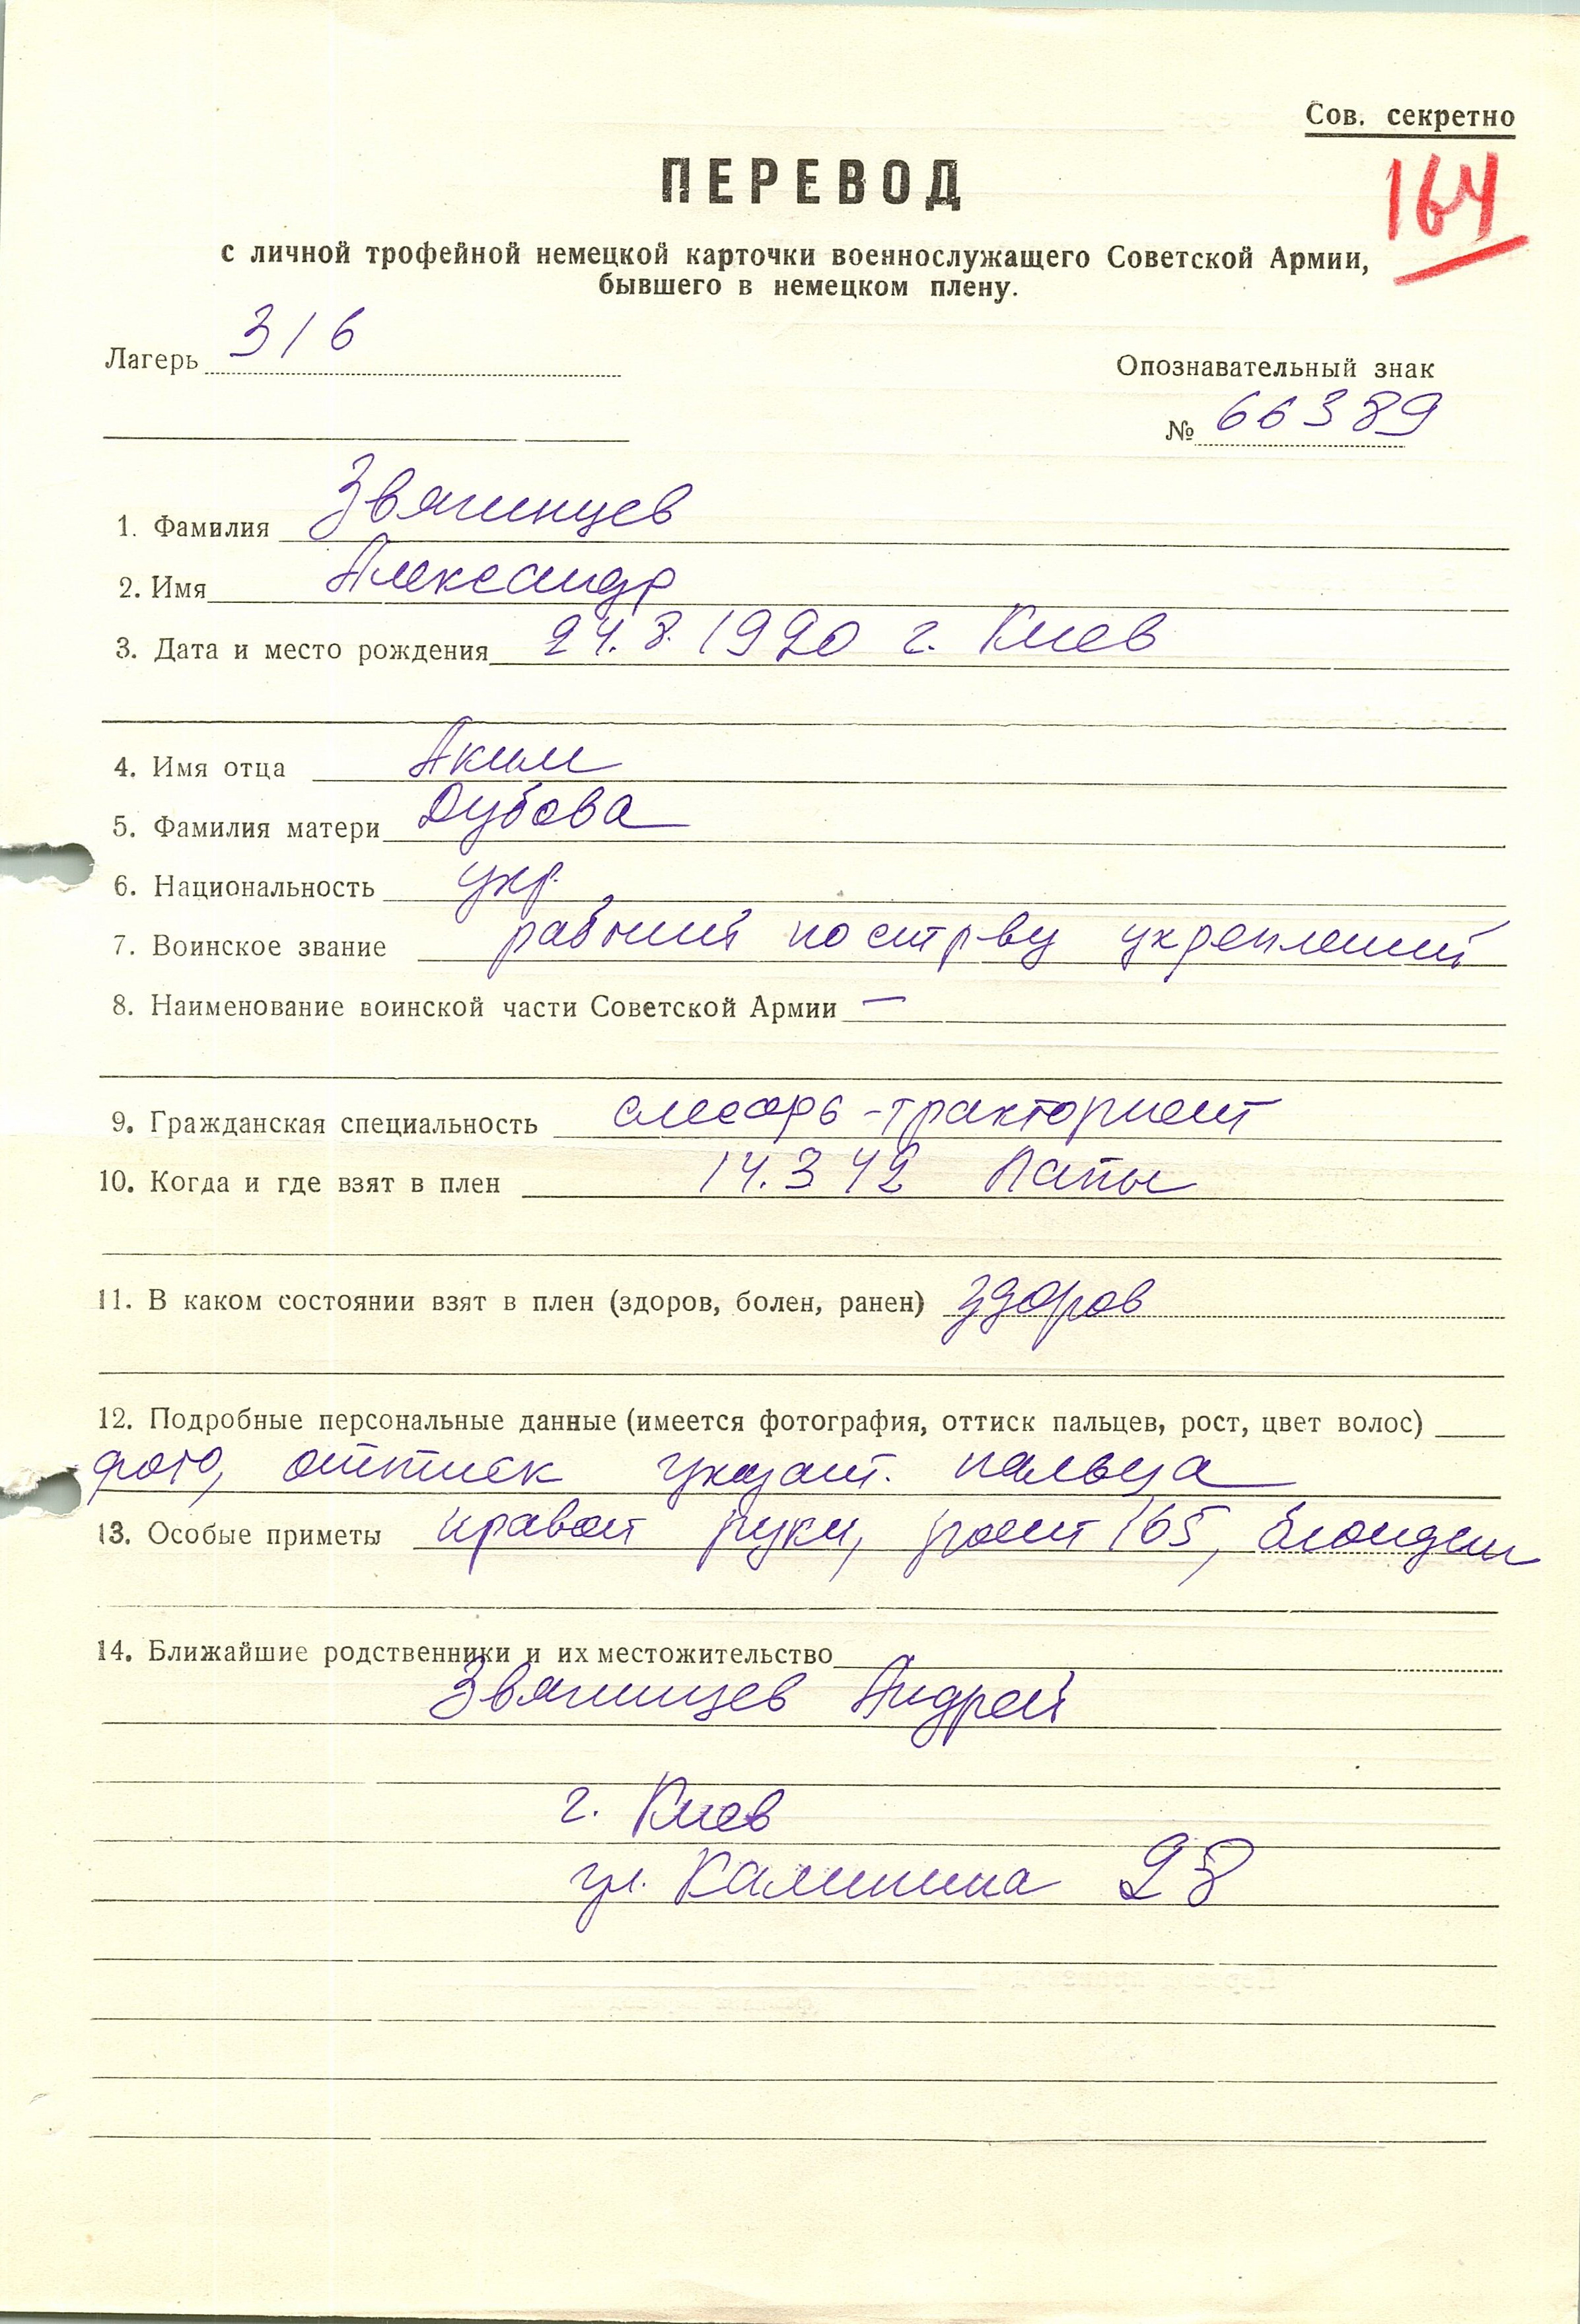 Сов. секретно
164
ПЕРЕВОД
с личной трофейной немецкой карточки военнослужащего Советской Армии,
бывшего в немецком плену.
Лагерь 316
Опознавательный знак
№ 66389
1. Фамилия Звягинцев
2. Имя Александр
3. Дата и место рождения 24.8.1920 г. Киев
4. Имя отца Аким
5. Фамилия матери Дубова
6. Национальность укр.
7. Воинское звание рабочий по стр-ву укреплений
8. Наименование воинской части Советской Армии —
9. Гражданская специальность слесарь-тракторист
10. Когда и где взят в плен 14.3 42 Лапы
11. В каком состоянии взят в плен (здоров, болен, ранен) здоров
12. Подробные персональные данные (имеется фотография, оттиск пальцев, рост, цвет волос)
фото, оттиск указат. пальца
13. Особые приметы правой руки, рост 165, блондин
14. Ближайшие родственники и их местожительство
Звягинцев Андрей
г. Киев
ул. Калинина 28